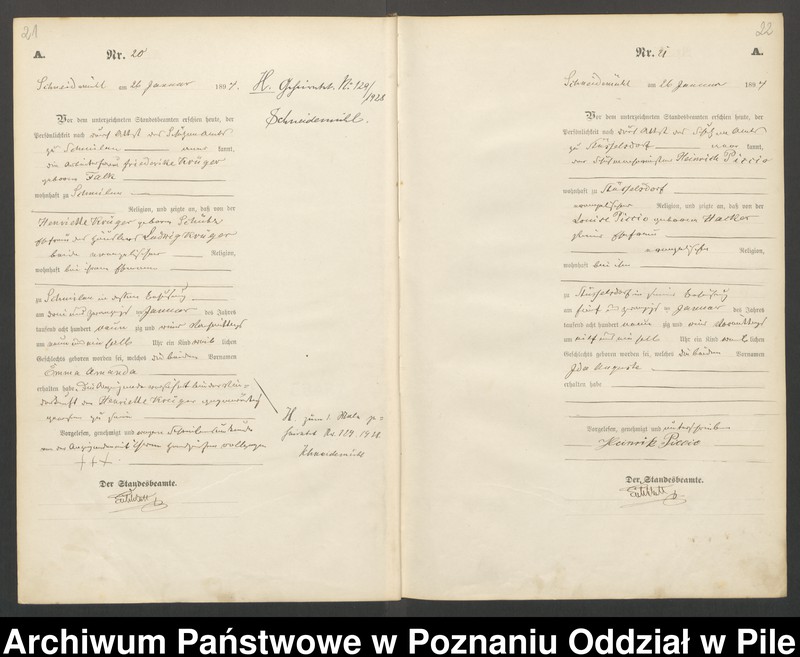 21
A.
Nr. 20
Schneidemühl am 26 Januar 1894.
Vor dem unterzeichneten Standesbeamten erschien heute, der
Persönlichkeit nach durch Attest des Schulzen Amts
zu Schmilau kannt,
die Arbeiterfrau Friederike Krüger
geborene Falk
wohnhaft zu Schmilau
Religion, und zeigte an, daß von der
Henriette Krüger geborene
Ehefrau des Häuslers Ludwig Krüger
beide evangelischer Religion,
wohnhaft bei ihrem Ehemann
zu Schmilau in dessen Behausung
am drei und zwanzigsten Januar des Jahres
tausend acht hundert neunzig und vier Nachmittags
um neun und ein halb Uhr ein Kind weiblichen
Geschlechts geboren worden sei, welches die beiden Vornamen
Emma Amanda
erhalten habe. Die Anzeigende
der Henriette Krüger gegenwärtig
gewesen zu sein
Vorgelesen, genehmigt und wegen Schreibensunkunde
von der Anzeigenden mit ihrem Handzeichen vollzogen
+++
Der Standesbeamte.
H. Geheiratet. Nr. 129/1928
Schneidemühl.
H. zum 1. Male ge-
heiratet Nr.
Schneidemühl
22
Nr. 21
A.
Schneidemühl am 26 Januar 1894
Vor dem unterzeichneten Standesbeamten erschien heute, der
Persönlichkeit nach durch Attest des Schulzen Amts
zu Stüsselsdorf kannt,
der Schuhmachermeister Heinrich Piccio
wohnhaft zu Stüsselsdorf
evangelischer Religion, und zeigte an, daß von der
Louise Piccio geborenen
seiner Ehefrau
evangelischer Religion,
wohnhaft bei ihm
zu Stüsselsdorf in seiner Behausung
am fünf und zwanzigsten Januar des Jahres
tausend acht hundert neunzig und vier Vormittags
um elf und ein halb Uhr ein Kind weiblichen
Geschlechts geboren worden sei, welches die beiden Vornamen
Ida Auguste
erhalten habe
Vorgelesen, genehmigt und unterschrieben
Heinrich Piccio
Der Standesbeamte.
Archiwum Państwowe w Poznaniu Oddział w Pile